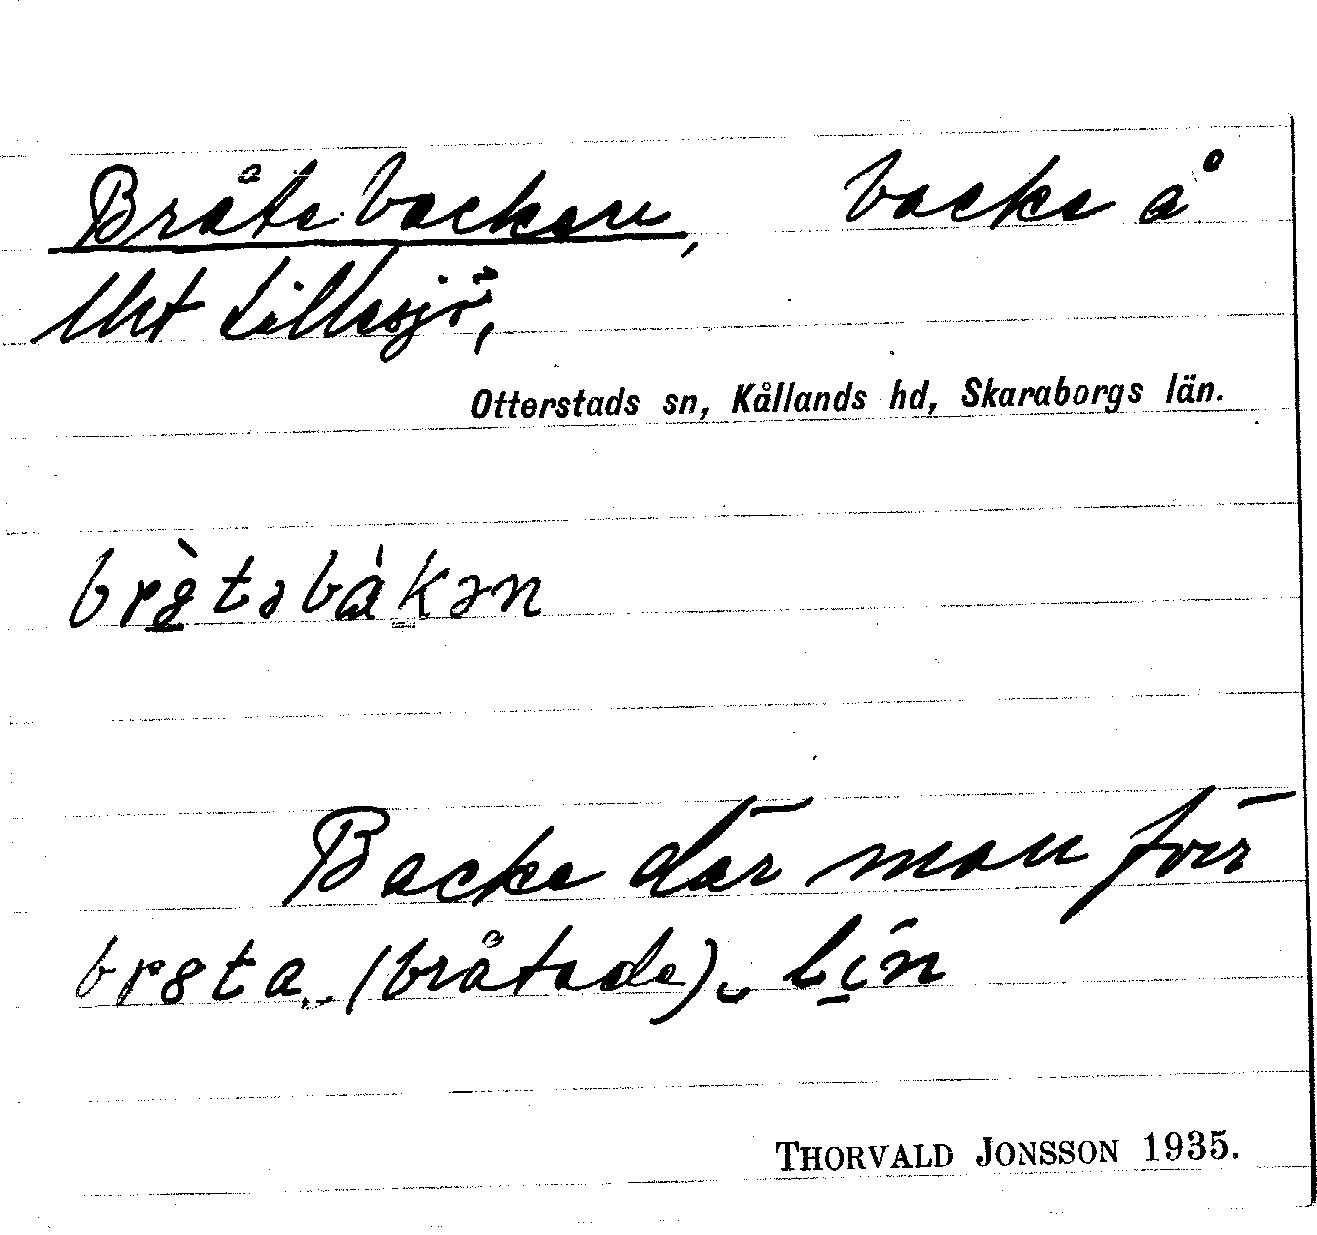 Bråtebacken, backe å
Utst Lillesjö,
Otterstads sn, Kållands hd, Skaraborgs län.
br8̀təbàkən
Backe där man förr
br8ta (bråtade) lin
THORVALD JONSSON 1935.